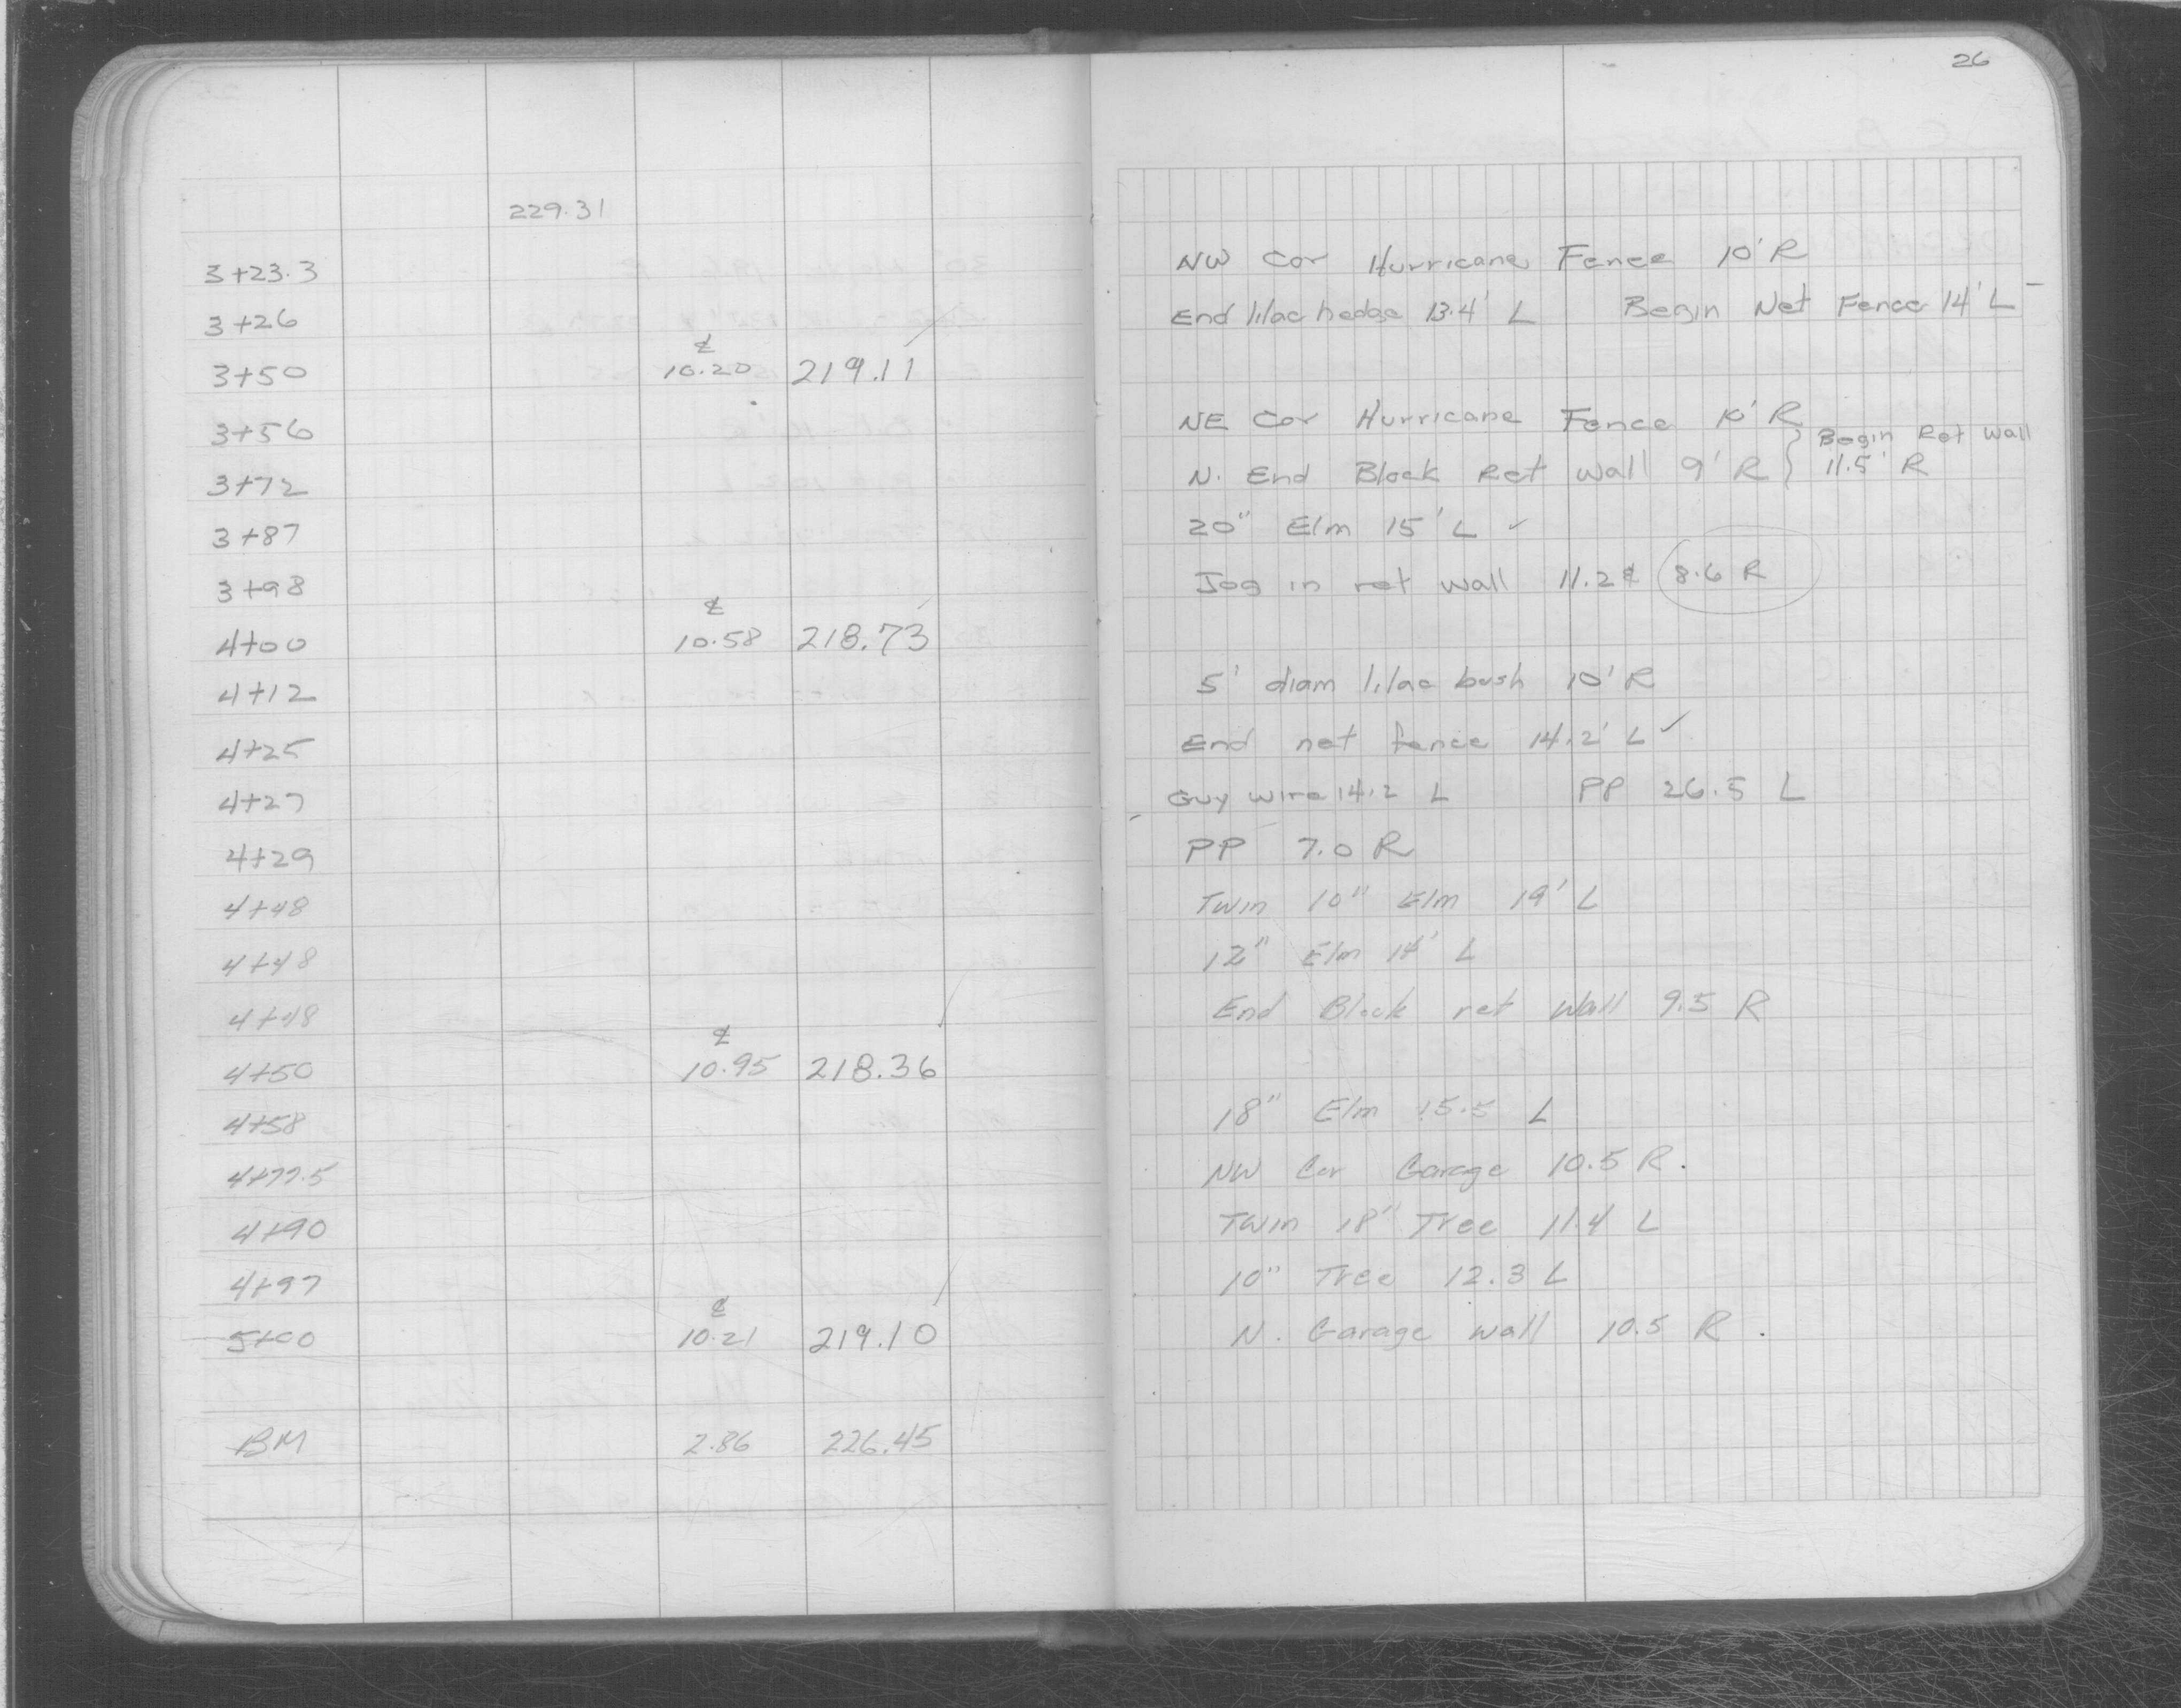 26
229.31
3+23.3 NW Cor Hurricane Fence 10' R
3+26 End lilac hedge 13.4' L Begin Net Fence 14' L
℄
3+50 10.20 219.11
3+56 NE Cor Hurricane Fence 10' R
3+72 N. End Block Ret Wall 9' R } Begin Ret Wall 11.5' R
3+87 20" Elm 15' L ✓
3+98 Jog in ret wall 11.2 & 8.6 R
℄
4+00 10.58 218.73
4+12 5' diam lilac bush 10' R
4+25 End net fence 14.2' L ✓
4+27 Guy wire 14.2 L PP 26.5 L
4+29 PP 7.0 R
4+48 Twin 10" Elm 19' L
4+48 12" Elm 14' L
4+48 End Block ret Wall 9.5 R
℄
4+50 10.95 218.36
4+58 18" Elm 15.5 L
4+77.5 NW Cor Garage 10.5 R.
4+90 Twin 18" Tree 11.4 L
4+97 10" Tree 12.3 L
℄
5+00 10.21 219.10 N. Garage wall 10.5 R.
BM 2.86 226.45